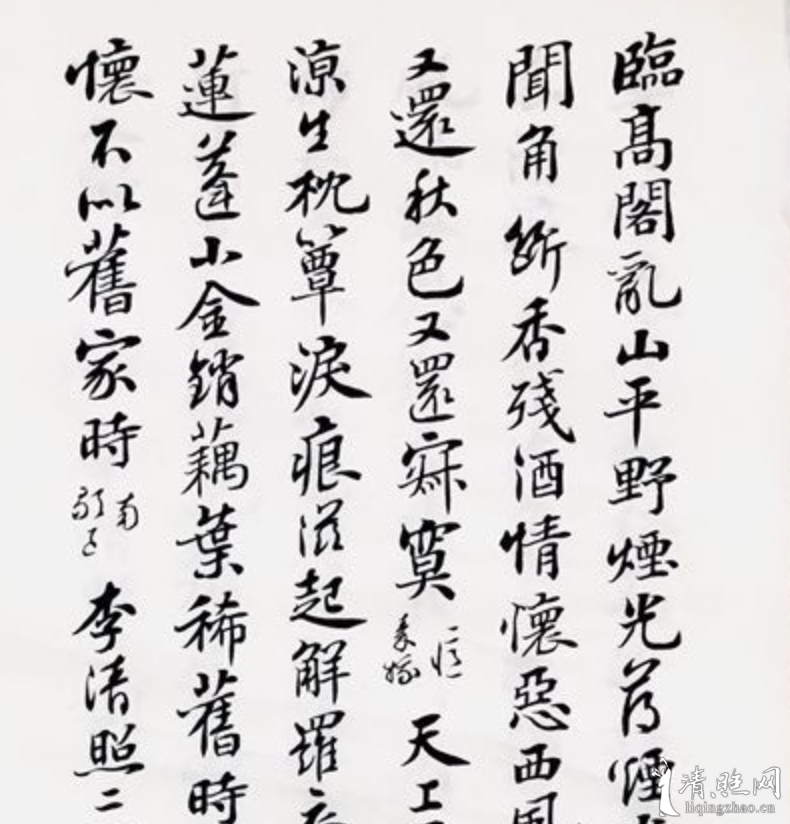 臨高閣亂山平野煙光薄煙
聞角斷香殘酒情懷惡西風
又還秋色又還寂寞憶秦娥天上
涼生枕簟淚痕滋起解羅衣
蓮蓬小金銷藕葉稀舊時
懷不似舊家時南歌子李清照二
liqingzhao.cn